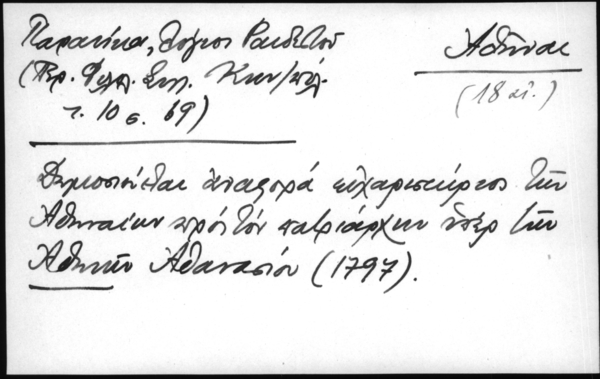 Παρανίκα,
(Περ. Φιλ. Συλ. Κων/πόλ.
τ. 10 σ. 69)
Ἀθῆναι
(18 αἰ.)
Δημοσιεύεται ἀναφορά εὐχαριστήριος τῶν
Ἀθηναίων πρός τόν πατριάρχην ὑπέρ τοῦ
Ἀθηνῶν Ἀθανασίου (1797).